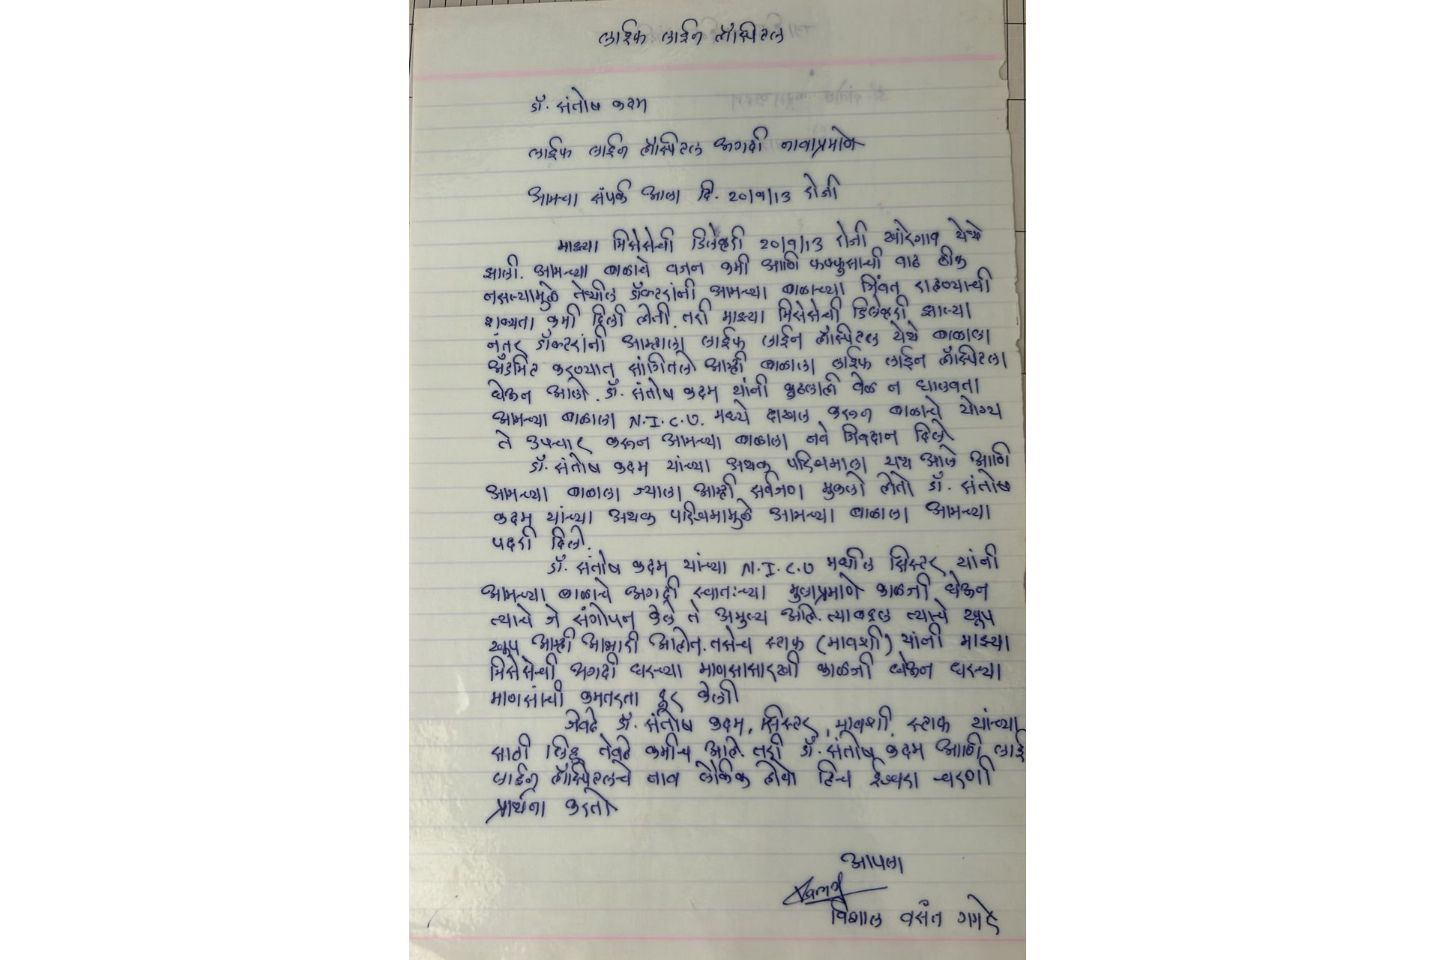 लाईफ लाईन हॉस्पिटल
डॉ. संतोष कदम
लाईफ लाईन हॉस्पिटल अगदी नावाप्रमाणे
आमचा संपर्क आला दि. २०/१/१३ रोजी
माझ्या मिसेसची डिलेव्हरी २०/१/१३ रोजी येथे
झाली. आमच्या बाळाचे वजन कमी आणि फफ्फुसाची वाढ ठीक
नसल्यामुळे तेथील डॉक्टरांनी आमच्या बाळाच्या जिंवत राहण्याची
शक्यता कमी दिली होती. तरी माझ्या मिसेसची डिलेव्हरी झाल्या
नंतर डॉक्टरांनी आम्हाला लाईफ लाईन हॉस्पिटल येथे बाळाला
अॅडमिट करण्यात सांगितले आम्ही बाळाला लाईफ लाईन हॉस्पिटला
घेऊन आलो. डॉ. संतोष कदम यांनी कुठलाही वेळ न घालवता
आमच्या बाळाला N.I.C.U. मध्ये दाखल करून बाळाचे योग्य
ते उपचार करून आमच्या बाळाला नवे जिवदान दिले
डॉ. संतोष कदम यांच्या अथक परिश्रमाला यश आले आणि
आमच्या बाळाला ज्याला आम्ही सर्वजण मुकलो होतो डॉ. संतोष
कदम यांच्या अथक परिश्रमामुळे आमच्या बाळाला आमच्या
पदरी दिले.
डॉ. संतोष कदम यांच्या N.I.C.U मधील सिस्टर यांनी
आमच्या बाळाचे अगदी स्वातःच्या मुलाप्रमाणे काळजी घेऊन
त्याचे जे संगोपन केले ते अमुल्य आहे. त्याबद्दल त्याचे खूप
खूप आम्ही आभारी आहोत. तसेच स्टाफ (मावशी) यांनी माझ्या
मिसेसची अगदी घरच्या माणसासारखी काळजी घेऊन घरच्या
माणसांची कमतरता दूर केली
जेवढे डॉ. संतोष कदम, सिस्टर, मावशी, स्टाफ यांच्या
साठी लिहू तेवढे कमीच आहे. तरी डॉ. संतोष कदम आणि लाई
लाईन हॉस्पिटलचे नाव लौकिक होवो हिच ईश्वरा चरणी
प्रार्थना करतो
आपला
विशाल वसंत गगरे